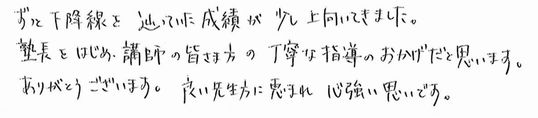 ずっと下降線を辿っていた成績が少し上向いてきました。
塾長をはじめ、講師の皆さま方の丁寧な指導のおかげだと思います。
ありがとうございます。良い先生方に恵まれ心強い思いです。